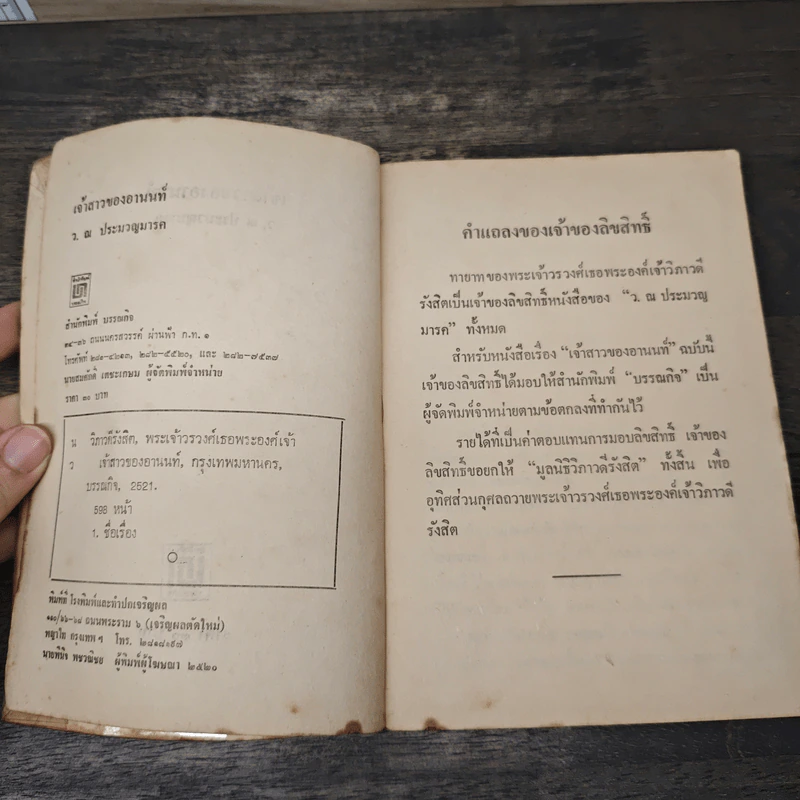 เจ้าสาวของอานนท์
ว. ณ ประมวญมารค
สำนักพิมพ์ บรรณกิจ
๓๔-๓๖ ถนนนครสวรรค์ ผ่านฟ้า ก.ท. ๑
โทรศัพท์ ๒๘๑-๔๒๑๓, ๒๘๒-๕๕๒๐, และ ๒๘๒-๗๕๓๗
นายสมศักดิ์ เตชะเกษม ผู้จัดพิมพ์จำหน่าย
ราคา ๓๐ บาท
น วิภาวดีรังสิต, พระเจ้าวรวงศ์เธอพระองค์เจ้า
ว เจ้าสาวของอานนท์, กรุงเทพมหานคร,
บรรณกิจ, 2521.
598 หน้า
1. ชื่อเรื่อง
พิมพ์ที่ โรงพิมพ์และทำปกเจริญผล
๑๑๐/๖๖-๖๘ ถนนพระราม ๖ (เจริญผลตัดใหม่)
พญาไท กรุงเทพ ฯ โทร. ๒๘๑๘๓๘๗
นายพินิจ ผู้พิมพ์ผู้โฆษณา ๒๕๒๑
คำแถลงของเจ้าของลิขสิทธิ์
ทายาทของพระเจ้าวรวงศ์เธอพระองค์เจ้าวิภาวดี
รังสิตเป็นเจ้าของลิขสิทธิ์หนังสือของ “ว. ณ ประมวญ
มารค” ทั้งหมด
สำหรับหนังสือเรื่อง “เจ้าสาวของอานนท์” ฉบับนี้
เจ้าของลิขสิทธิ์ได้มอบให้สำนักพิมพ์ “บรรณกิจ” เป็น
ผู้จัดพิมพ์จำหน่ายตามข้อตกลงที่ทำกันไว้
รายได้ที่เป็นค่าตอบแทนการมอบลิขสิทธิ์ เจ้าของ
ลิขสิทธิ์ขอยกให้ “มูลนิธิวิภาวดีรังสิต” ทั้งสิ้น เพื่อ
อุทิศส่วนกุศลถวายพระเจ้าวรวงศ์เธอพระองค์เจ้าวิภาวดี
รังสิต